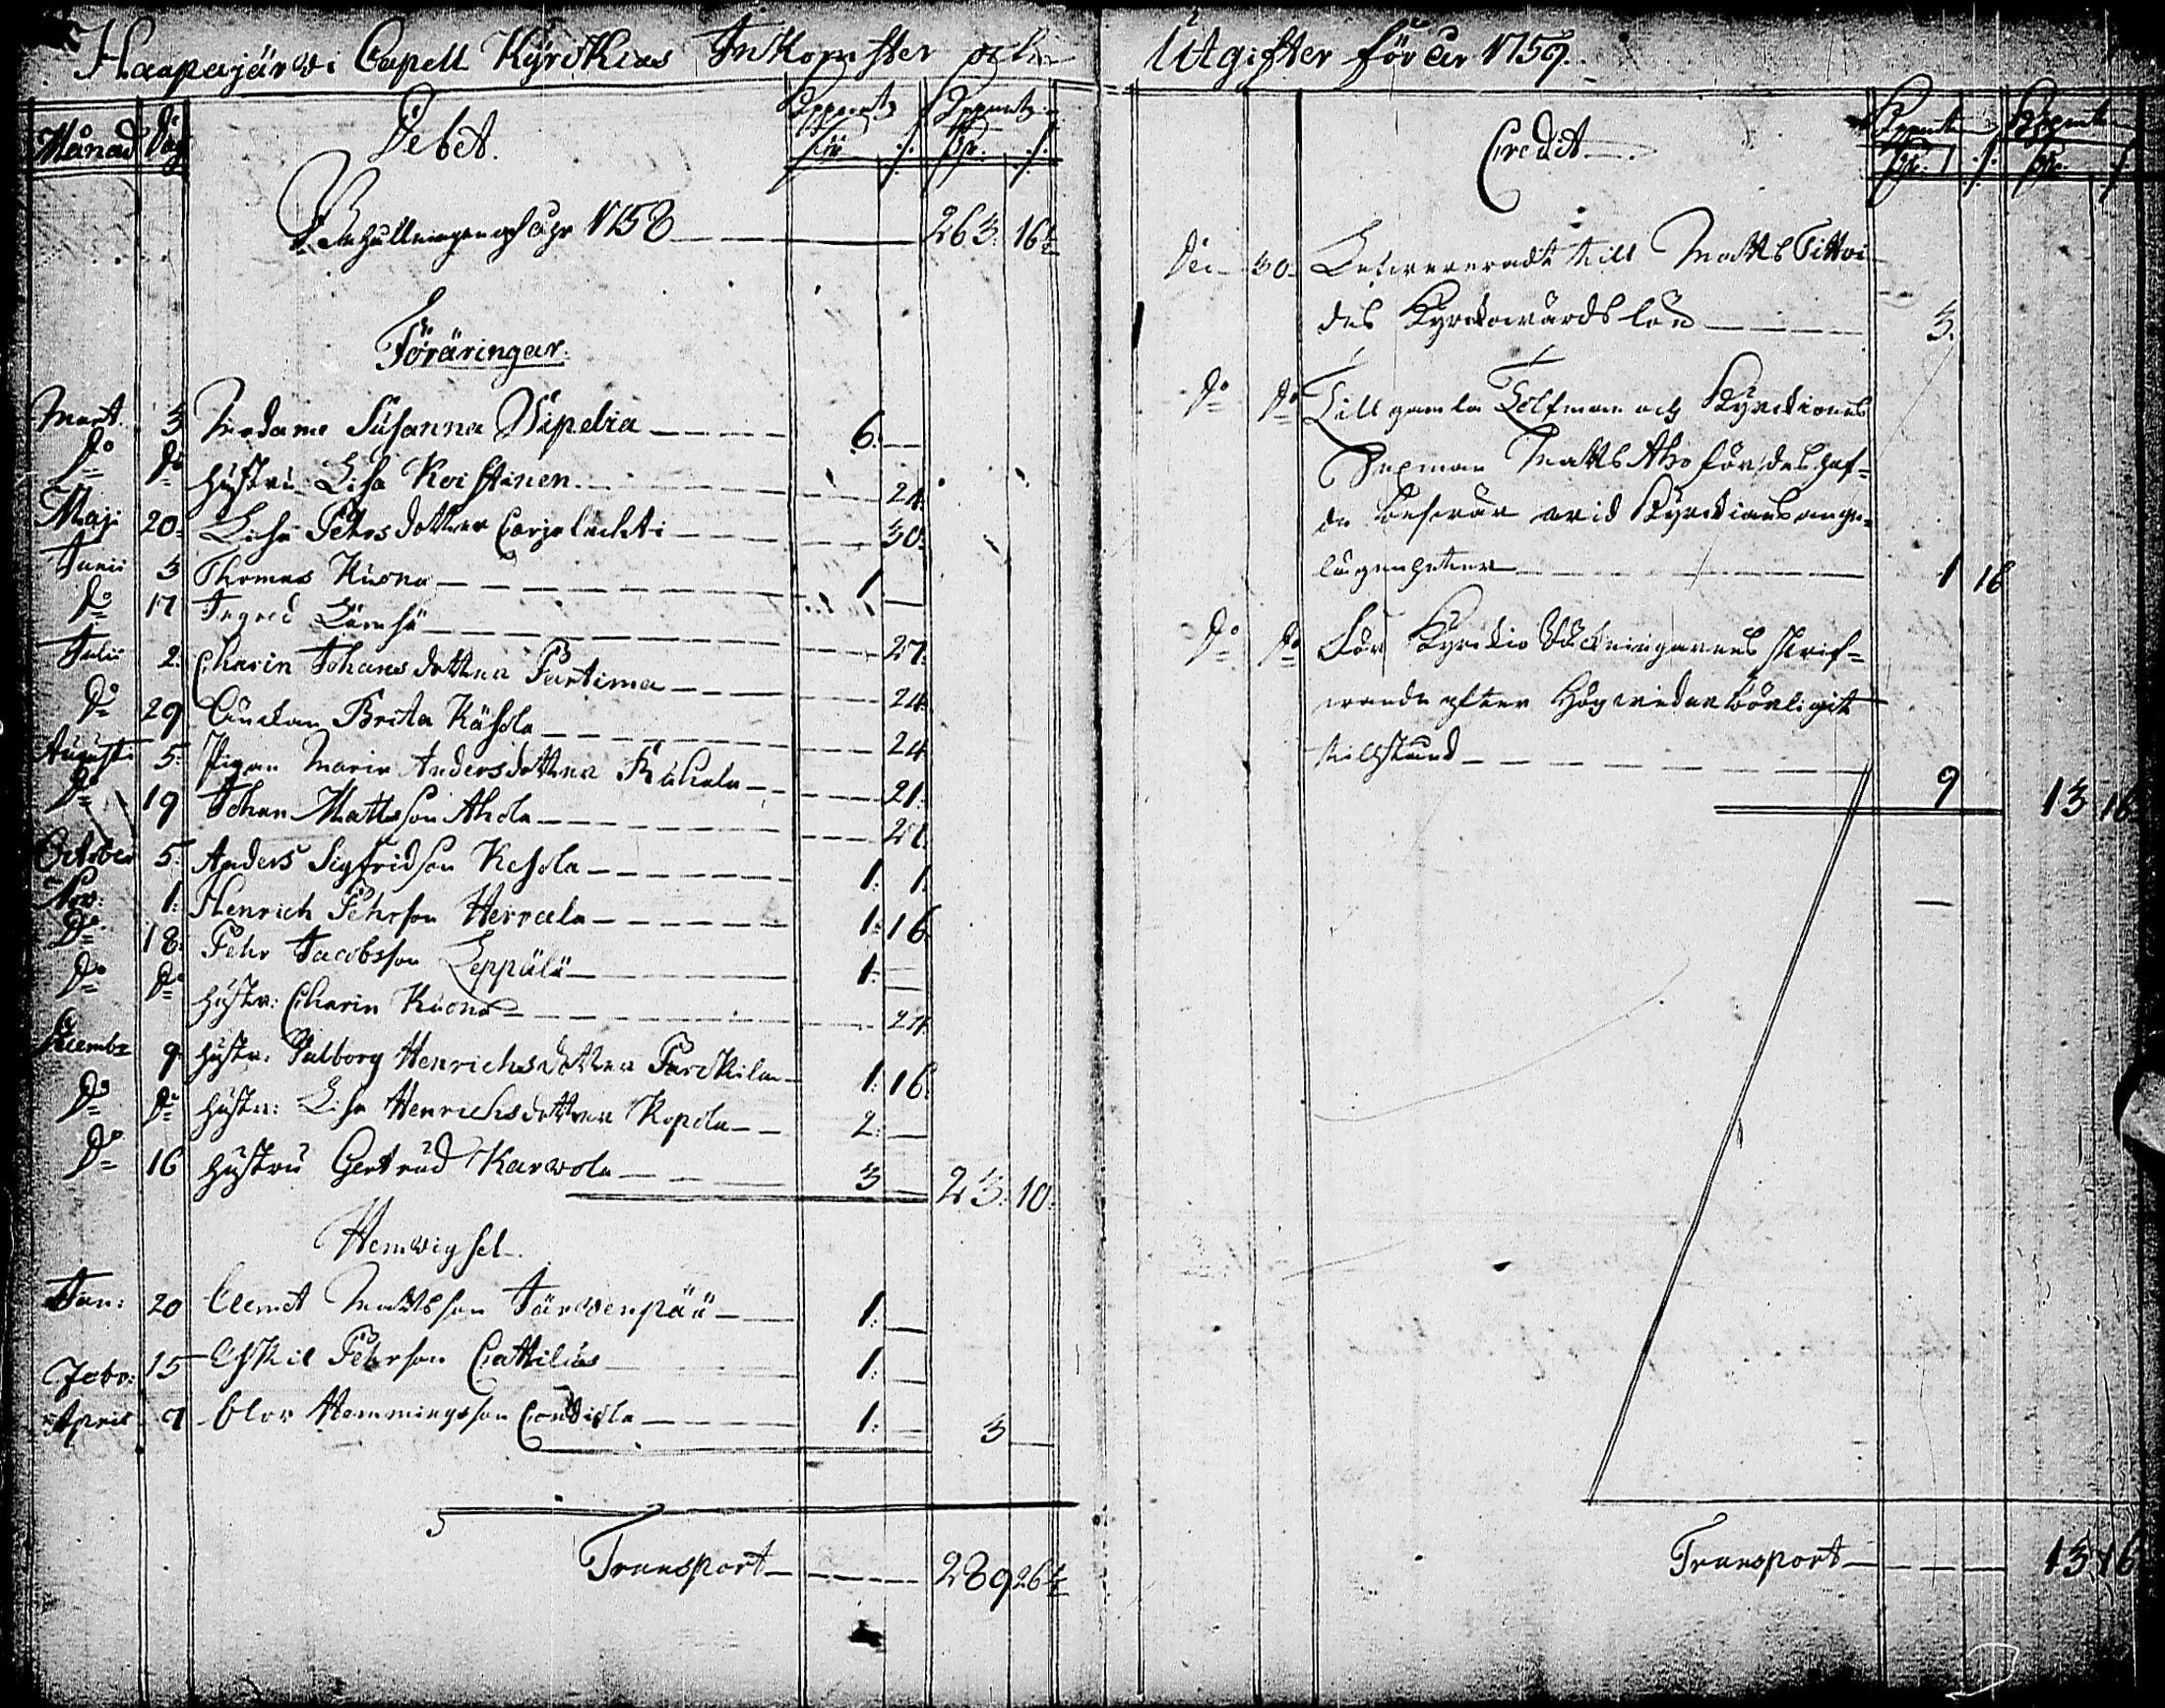 Haapajärwi Capell Kyrckias Inkomster och Utgifter för år 1759.
Månad Dag Debet. Kopparmt Kopparmt
dlr /: dlr /:
Behållningen af åhr 1758 263. 16½
Föräringar.
Mart. 3 Madame Susanna Wipelia 6. —
Do Do Hustru Lisa Koistinen 24.
Maji 20. Lisa Pehrsdotter Carjalachti 30.
Junii 3 Thomas Kuona 1 —
Do 17 Ingred Lämsä 27.
Julii 2. Charin Johansdotter Partima 24.
Do 29 Änckan Brita Käsola 24
Augusti 5. Pigan Maria Andersdotter Kukala 21.
Do 19 Johan Mattsson Ahola 21.
October 5. Anders Sigfridson Kesola 1. 1.
Nov: 1. Henrich Pehrson Herrala 1. 16.
Do 18. Pehr Jacobsson Leppälä 1. —
Do Do Hustr: Charin Kuona 24.
Decembr 9. Hustr: Valborg Henrichsdotter Parckila 1. 16.
Do Do Hustr: Lisa Henrichsdotter Kopola 2. —
Do 16 Hustru Gertrud Karwola 3 — 23. 10.
Hemvigsel.
Jan: 20 Clemet Mattsson Järvenpää 1. —
Febr: 15 Eskil Pehrson Cattilus 1. —
April 7 Olov Hemmingsson Contiola 1. — 3 —
Transport 289 26½
Credit Kopparmt Kopparmt
dlr. /: dlr. /:
Dec 30. Lefwereradt till Matts Pitkoi
des Kyrckowärds lön 3.
Do Do Till gamla Tolfman och Kyrckiones
Sexman Matts Aho för des haf-
de beswär wid Kyrckians ange-
lägenheter 1 16
Do Do För Kyrckio Räckningarnes skrif-
wande efter Högwederbörligit
tillstånd 9 13 16
Transport 13. 16